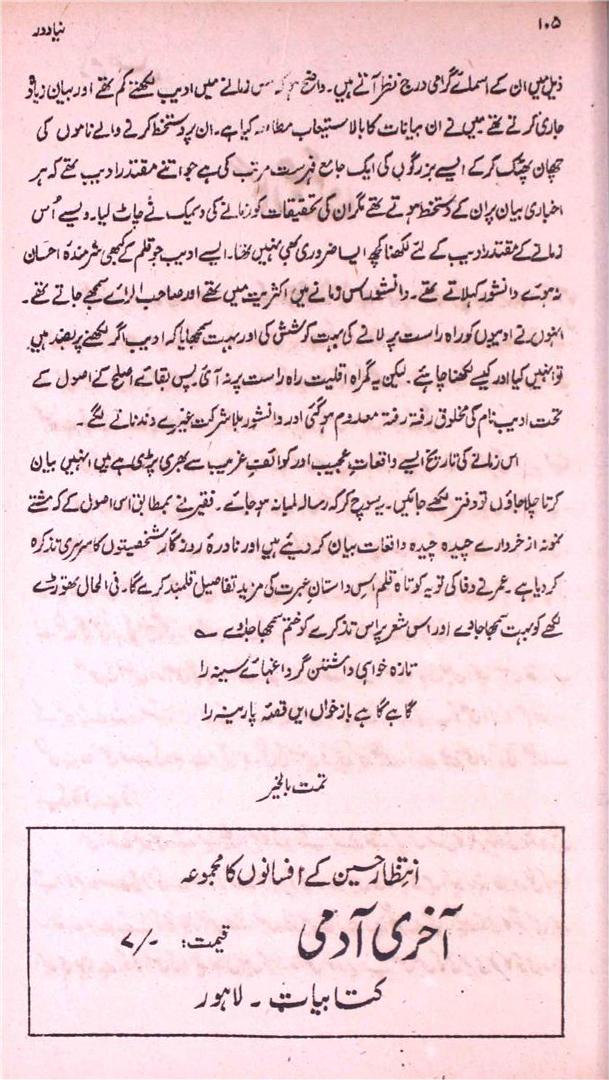 نیا دور
۱۰۵
ذیل میں ان کے اسمائے گرامی درج نظر آتے ہیں۔ واضح ہو کہ اس زمانے میں ادیب لکھتے کم تھے اور بیان زیادہ
جاری کرتے تھے میں نے ان بیانات کا بالاستیعاب مطالعہ کیا ہے۔ ان پر دستخط کرنے والے ناموں کی
چھان پھٹک کر کے ایسے بزرگوں کی ایک جامع فہرست مرتب کی ہے جو اتنے مقتدر ادیب تھے کہ ہر
اخباری بیان پر ان کے دستخط ہوتے تھے مگر ان کی تحقیقات کو زمانے کی دیمک نے چاٹ لیا۔ ویسے اُس
زمانے کے مقتدر ادیب کے لئے لکھنا کچھ ایسا ضروری بھی نہیں تھا۔ ایسے ادیب جو قلم کے کبھی شرمندہٴ احسان
نہ ہوئے دانشور کہلاتے تھے۔ دانشور اس زمانے میں اکثریت میں تھے اور صاحب الرائے سمجھے جاتے تھے۔
انہوں نے ادیبوں کو راہ راست پر لانے کی بہت کوشش کی اور بہت سمجھایا کہ ادیب اگر لکھنے پر بضد ہیں
تو انہیں کیا اور کیسے لکھنا چاہئے۔ لیکن یہ گمراہ اقلیت راہ راست پر نہ آئی۔ پس بقائے اصلح کے اصول کے
تحت ادیب نام کی مخلوق رفتہ رفتہ معدوم ہو گئی اور دانشور بلا شرکت غیرے دندنانے لگے۔
اس زمانے کی تاریخ ایسے واقعاتِ عجیب اور کوائفِ غریب سے بھری پڑی ہے میں انہیں بیان
کرتا چلا جاؤں تو دفتر لکھے جائیں۔ یہ سوچ کر کہ رسالہ لمبا نہ ہو جائے۔ فقیر نے بمطابق اس اصول کے کہ مشتے
نمونہ از خروارے چیدہ چیدہ واقعات بیان کر دیئے ہیں اور نادرہٴ روزگار شخصیتوں کا سرسری تذکرہ
کر دیا ہے۔ عمر نے وفا کی تو یہ کوتاہ قلم اس داستانِ عبرت کی مزید تفاصیل قلمبند کرے گا۔ فی الحال تھوڑے
لکھے کو بہت سمجھا جاوے اور اس شعر پر اس تذکرے کو ختم سمجھا جاوے ؎
تازہ خواہی داشتن گر داغہائے سینہ را
گاہے گاہے باز خواں ایں قصۂ پارینہ را
تمت بالخیر
انتظار حسین کے افسانوں کا مجموعہ
آخری آدمی قیمت: ۷/-
کتابیات ۔ لاہور